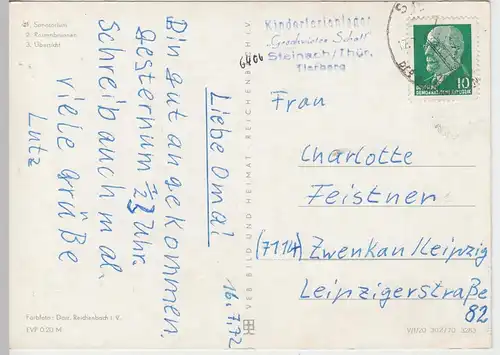 1. Sanatorium
2. Rosenbrunnen
3. Übersicht
16.7.72
Liebe Oma!
Bin gut angekommen.
Gestern um ½3 Uhr.
Schreib auch mal.
viele Grüße
Lutz
Farbfoto: Darr, Reichenbach i. V.
EVP 0.20 M
VEB BILD UND HEIMAT, REICHENBACH I. V.
Kinderferienlager
„Geschwister Scholl"
6406 Steinach/Thür.
Fierberg
10
DEUTSCHE
DEMOKRATISCHE REPUBLIK
Frau
Charlotte
Feistner
(7114) Zwenkau/Leipzig
Leipzigerstraße
82